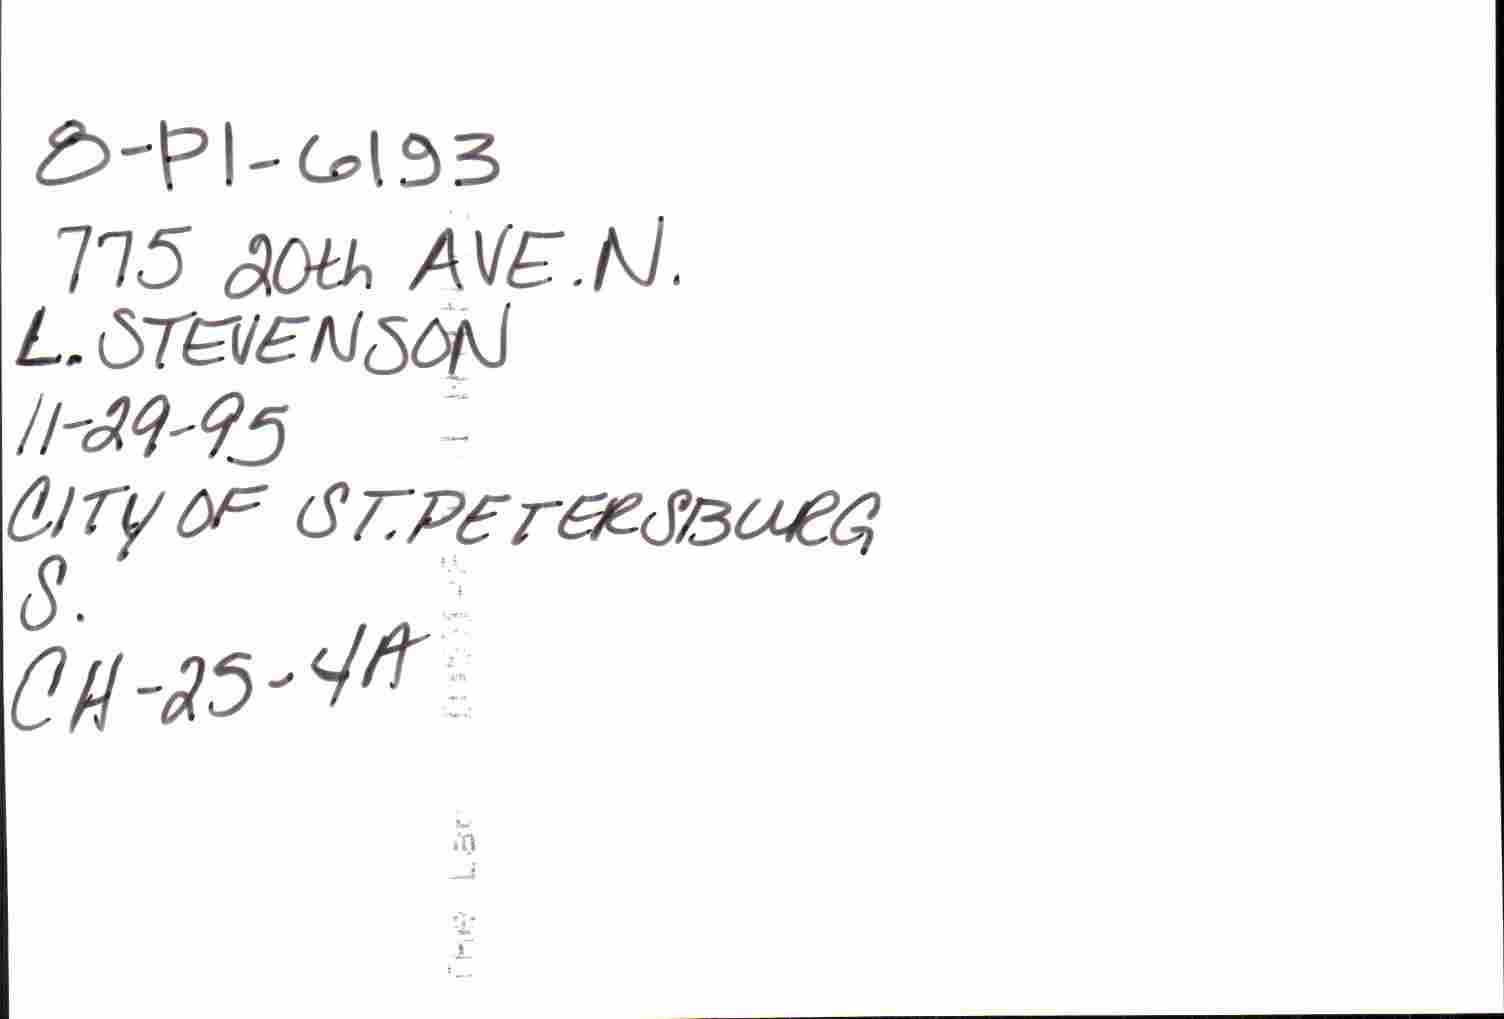 8-PI-6193
775 20th AVE. N.
L. STEVENSON
11-29-95
CITY OF ST. PETERSBURG
S.
CH-25-4A